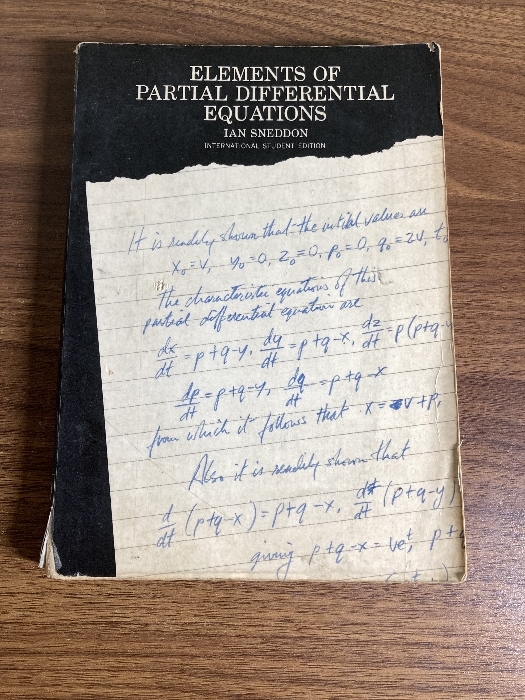 ELEMENTS OF
PARTIAL DIFFERENTIAL
EQUATIONS
IAN SNEDDON
INTERNATIONAL STUDENT EDITION
It is readily shown that the initial values are
x₀=v, y₀=0, z₀=0, p₀=0, q₀=2v, t₀
The characteristic equations of this
partial differential equation are
dx/dt = p+q-y, dy/dt = p+q-x, dz/dt = p(p+q-y
dp/dt = p+q-y, dq/dt = p+q-x
from which it follows that x = v+p,
Also it is readily shown that
d/dt (p+q-x) = p+q-x, d/dt (p+q-y)
giving p+q-x = veᵗ, p+